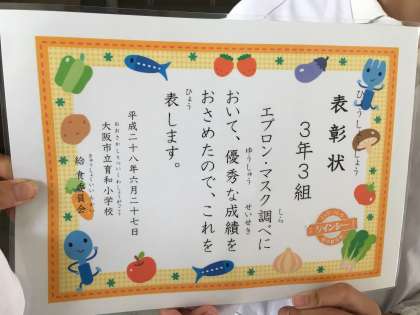 表彰状
ひょうしょうじょう
3年3組
エプロン・マスク調べに
しら
おいて、優秀な成績を
ゆうしゅう
せいせき
おさめたので、これを
表します。
ひょう
平成二十八年六月二十七日
大阪市立育和小学校
おおさかしりついくわしょうがっこう
給食委員会
きゅうしょくいいんかい